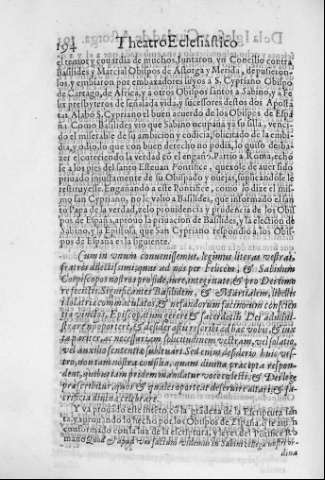 194 Theatro Eclesiastico
el temor y cõfusiõ de muchos. Iuntaron vn Concilio contra
Basilides y Marcial Obispos de Astorga y Merida, depusieron-
los, y embiaron por embaxadores suyos a S. Cypriano Obispo
de Cartago, de Africa, y a otros Obispos santos a Sabino, y a Fe
lix presbyteros de señalada vida, y sucessores destos dos Aposta
tas. Alabò S. Cypriano el buen acuerdo de los Obispos de Espa
ña. Como Basilides vio que Sabino ocupaua ya su silla, venci-
do el miserable de su ambicion y codicia, solicitado de la embi-
dia, y odio, lo que con buen derecho no podia, lo quiso desha-
zer escureciendo la verdad cõ el engaño. Partio a Roma, echo
se a los pies del santo Esteuan Pontifice, quexose de auer sido
priuado injustamente de su Obispado y ouejas, suplicandole le
restituyesse. Engañando a este Pontifice, como lo dize el mis-
mo san Cypriano, no le valio a Basilides, que informado el san
to Papa de la verdad,
pos de España, aprouò la priuacion de Basilides, y la eleccion de
Sabino, y la Epistola, que san Cypriano respondio a los Obis-
pos de España es la siguiente.
Cum in vnum conuenissemus, legimus literas vestras,
fratres dilectissimi, quas ad nos per Felicem, & Sabinum
Coepiscopos nostros pro fidei
re fecistis. Significantes Basilidem, & Martialem, libellis
idolatriæ commaculatos, & nefandorum facinorum conscien
tia vinctos, Episcopatum gerere, & sacerdotium Dei admini-
strare non oportere, & desiderastis rescribi ad hæc vobis, & iu
ta pariter, ac necessariam solicitudinem vestram, vel solatio,
vel auxilio sententiæ subleuari. Sed enim desiderio huic ves-
tro, non tam nostra consilia, quam diuina præcepta respon-
dent, quibus iam pridem mandatur voce cælesti, & Dei lege
præscribitur, quos & quales oporteat deseruire altari, & sa-
crificia diuina celebrare.
Y va prouado este intento cõ la grandeza de la Escriptura san
ta, y aprouando lo hecho por los Obispos de España,
conformado con la luz de la escriptura, y leyes del Pontifice Ro
mano
dina